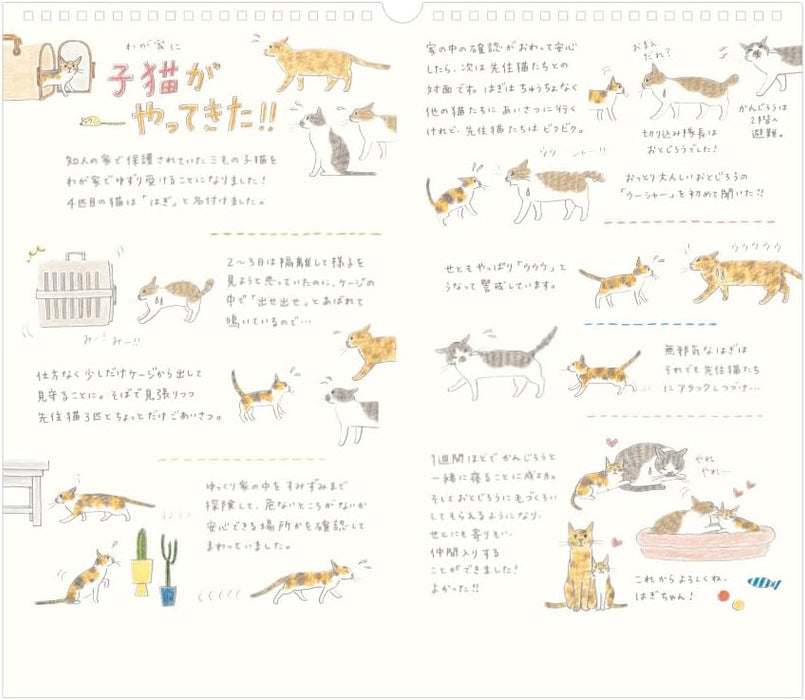 わが家に
子猫が
やってきた!!
知人の家で保護されていた三毛の子猫を
わが家でゆずり受けることになりました!
4匹目の猫は「はぎ」と名付けました。
2〜3日は隔離して様子を
見ようと思っていたのに、ケージの
中で「出せ出せ」とあばれて
鳴いているので…
みー! みー!!
仕方なく少しだけケージから出して
見守ることに。そばで見張りつつ
先住猫3匹とちょっとだけごあいさつ。
ゆっくり家の中をすみずみまで
探険して、危ないところがないか
安心できる場所かを確認して
まわっていました。
家の中の確認がおわって安心
したら、次は先住猫たちとの
対面です。はぎはちゅうちょなく
他の猫たちにあいさつに行く
けれど、先住猫たちはビクビク。
おまえ
だれ?
切り込み隊長は
おとじろうでした!
かんじろうは
2階へ
避難。
ウウーシャー!!
おっとり大人しいおとじろうの
「ウーシャー」を初めて聞いた!!
せともやっぱり「ウウウ」と
うなって警戒しています。
ウウウウウ
無邪気なはぎは
それでも先住猫たち
にアタックしつづけ…
1週間ほどでかんじろうと
一緒に寝ることに成功。
そしておとじろうに毛づくろい
してもらえるようになり、
せとにも寄りそい
仲間入りする
ことができました!
よかった!!
やれ
やれ…
これからよろしくね、
はぎちゃん!